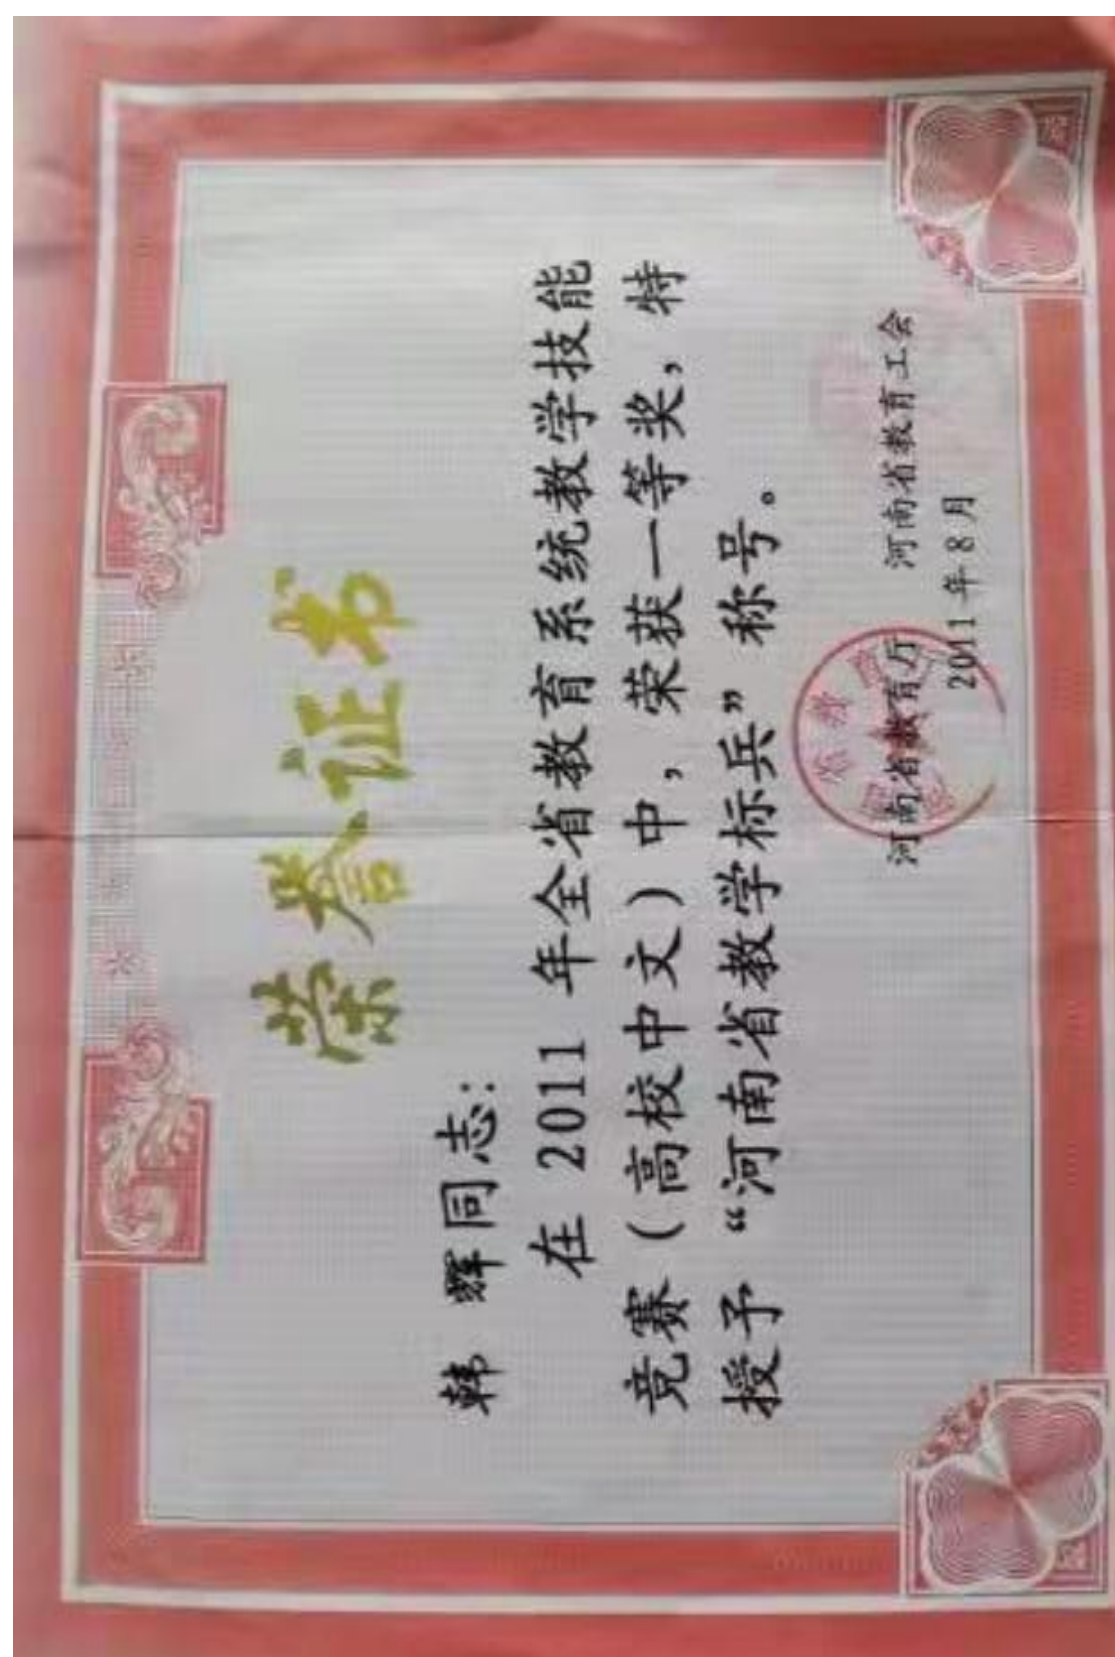 荣誉证书
韩 辉同志：
在 2011 年全省教育系统教学技能
竞赛（高校中文）中，荣获一等奖，特
授予“河南省教学标兵”称号。
河南省教育厅 河南省教育工会
2011 年 8 月